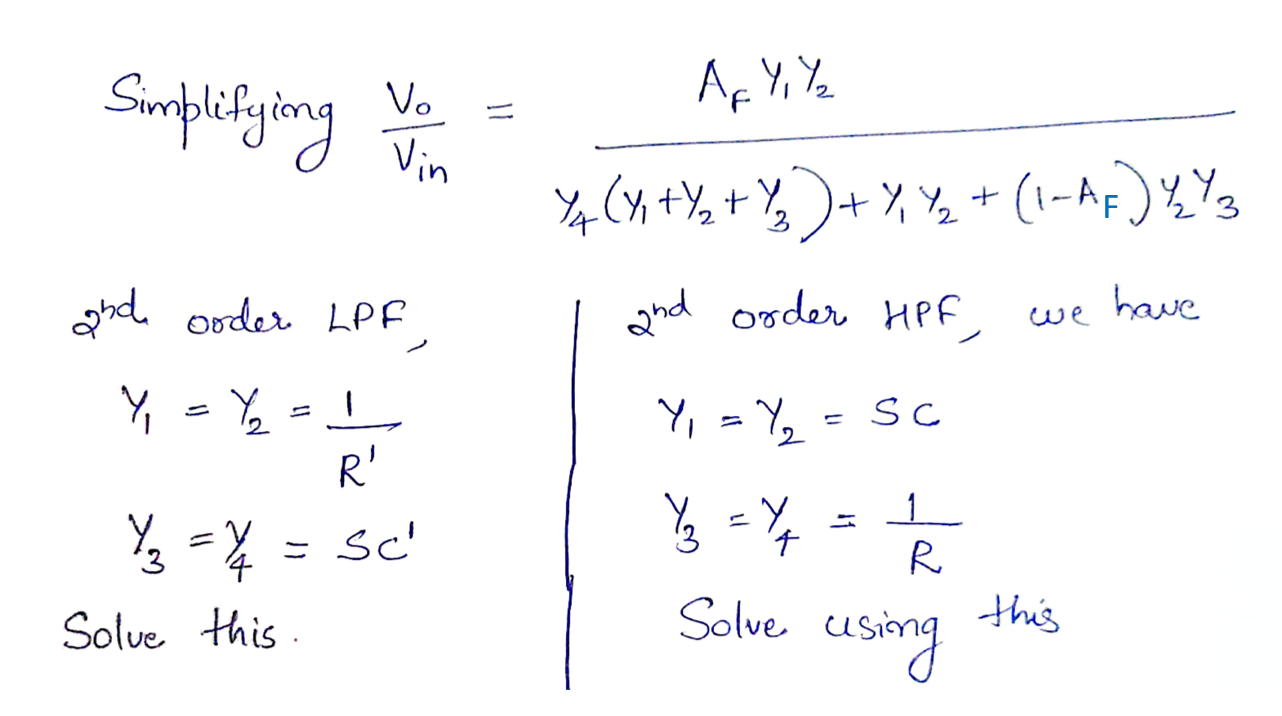 Simplifying Vo/Vin = A_F Y₁Y₂ / Y₄(Y₁+Y₂+Y₃)+Y₁Y₂+(1-A_F)Y₂Y₃
2nd order LPF,
Y₁ = Y₂ = 1/R'
Y₃ = Y₄ = SC'
Solve this.
2nd order HPF, we have
Y₁ = Y₂ = SC
Y₃ = Y₄ = 1/R
Solve using this